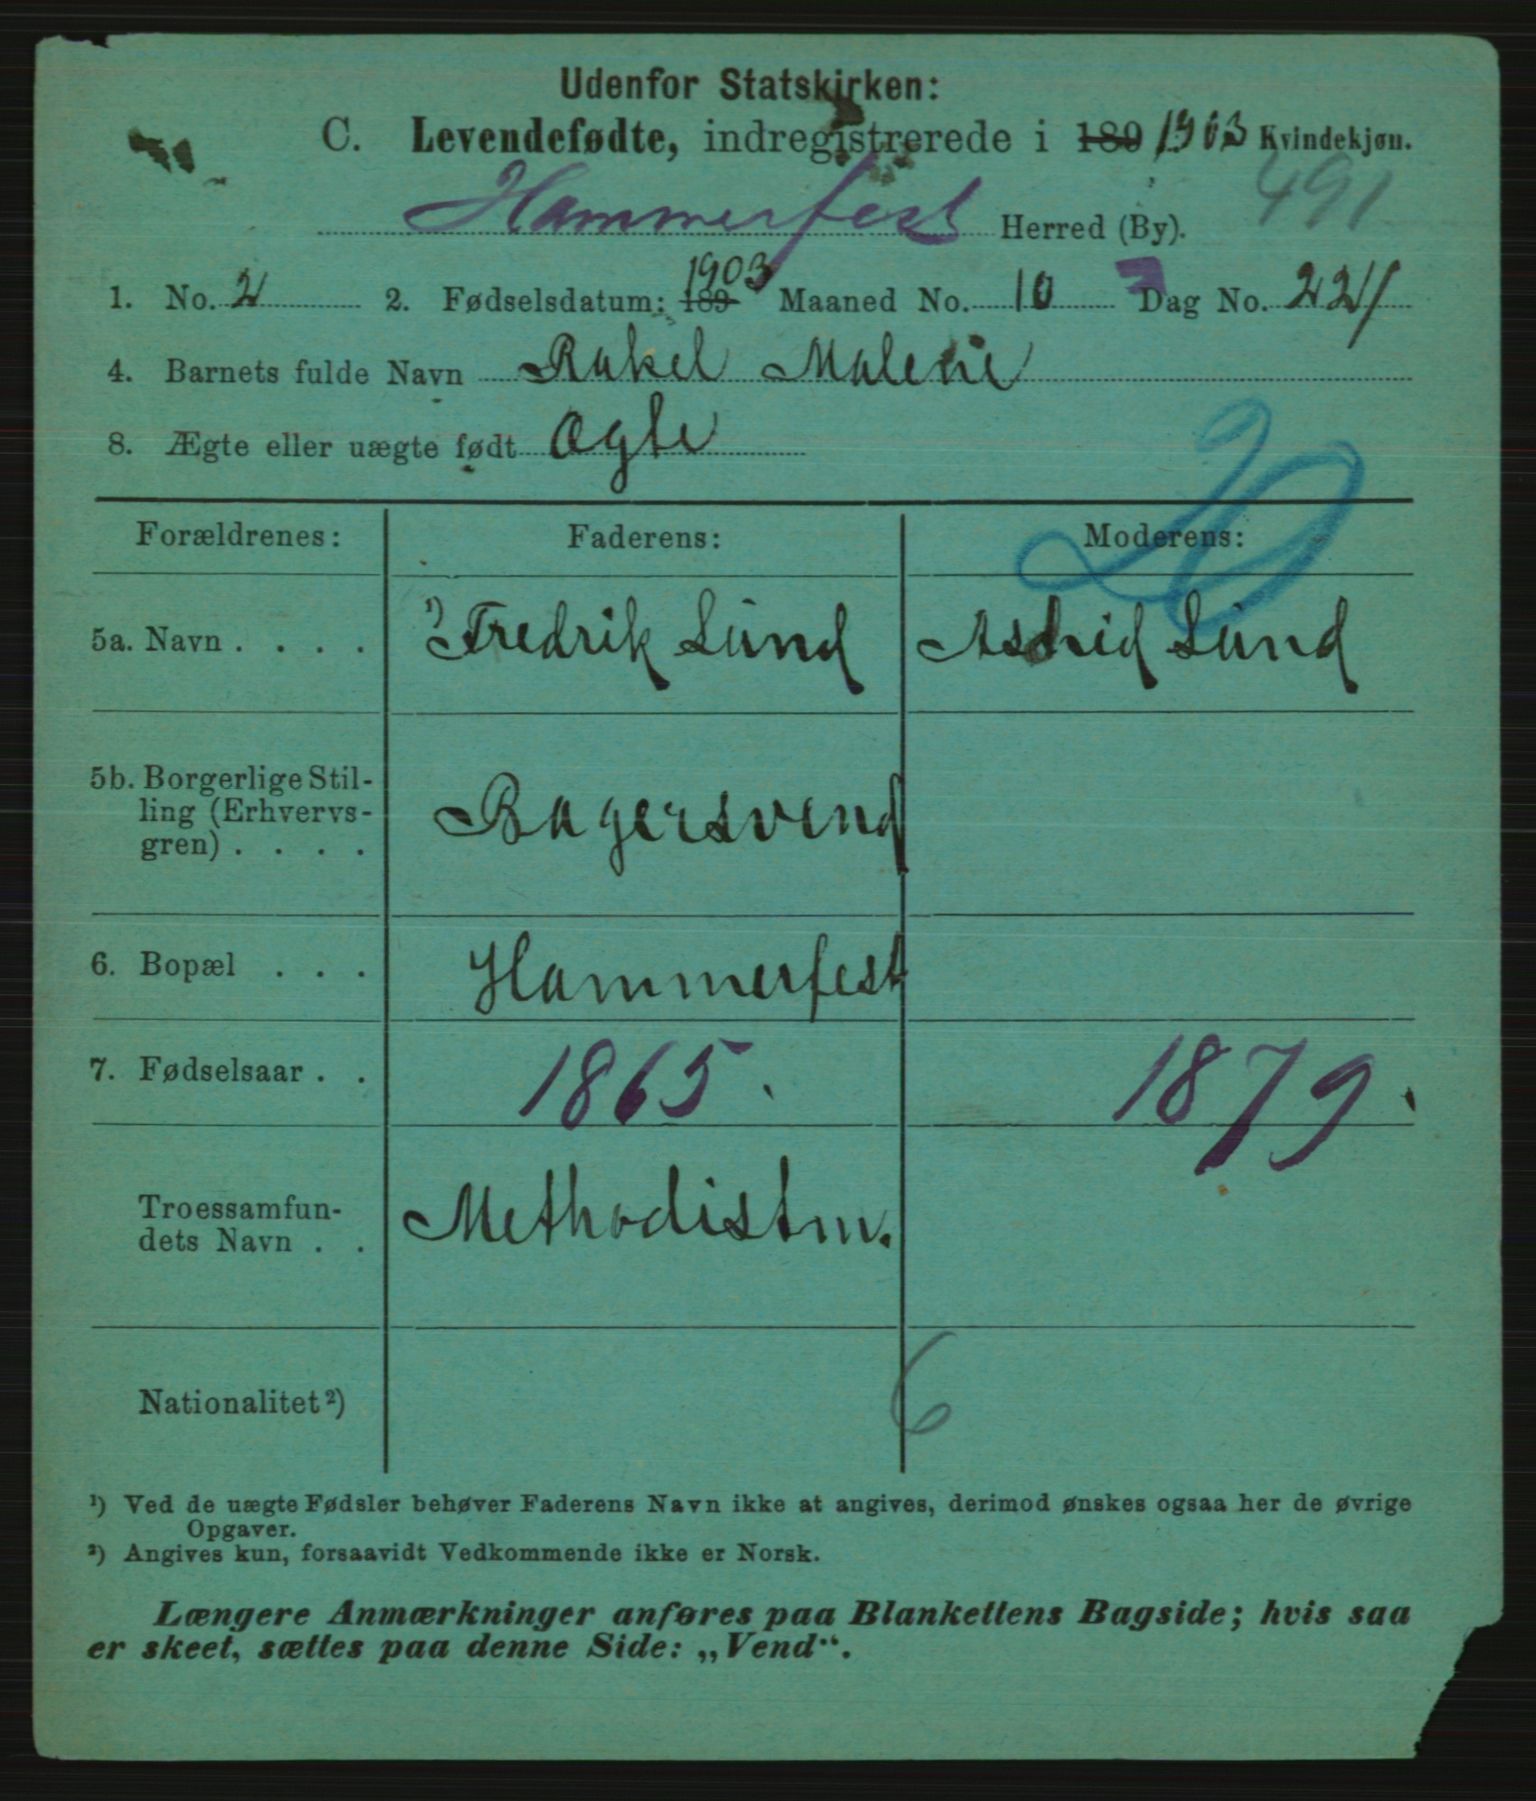 Udenfor Statskirken:
C. Levendefødte, indregistrerede i 189 1903 Kvindekjøn.
Hammerfest Herred (By). 491
1. No. 2 2. Fødselsdatum: 189 1903 Maaned No. 10 Dag No. 22
4. Barnets fulde Navn Rakel Malene
8. Ægte eller uægte født Ægte
20
Forældrenes: Faderens: Moderens:
5a. Navn . . . . ¹) Fredrik Lund Astrid Lund
5b. Borgerlige Stil-
ling (Erhvervs-
gren) . . . . Bagersvend
6. Bopæl . . . Hammerfest
7. Fødselsaar . . 1865. 1879.
Troessamfun-
dets Navn . . Methodistm.
Nationalitet ²)
6
¹) Ved de uægte Fødsler behøver Faderens Navn ikke at angives, derimod ønskes ogsaa her de øvrige
Opgaver.
²) Angives kun, forsaavidt Vedkommende ikke er Norsk.
Længere Anmærkninger anføres paa Blankettens Bagside; hvis saa
er skeet, sættes paa denne Side: „Vend“.